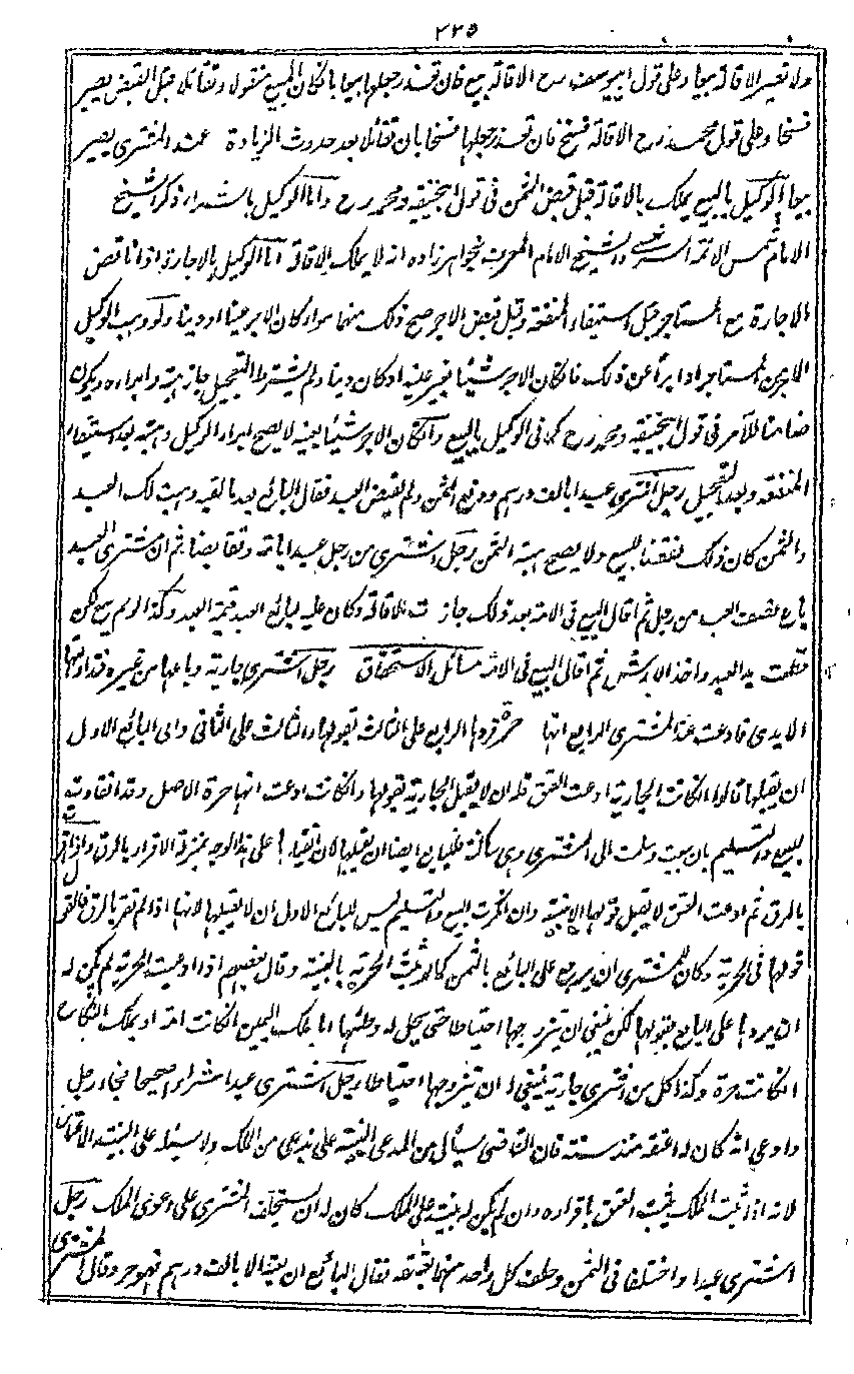 ٢٣٥
ولا تعتبر الاقالة بيعا وعلى قول ابي يوسف رح الاقالة بيع فان تعذر جعلها بيعا بان كان المبيع منقولا وتقائلا قبل القبض يصير
فسخا وعلى قول محمد رح الاقالة فسخ فان تعذر جعلها فسخا بان تقائلا بعد حدوث الزيادة عند المشترى يصير
بيعا الوكيل بالبيع يملك الاقالة قبل قبض الثمن فى قول ابيحنيفة ومحمد رح واما الوكيل بالشراء ذكر الشيخ
الامام شمس الائمة السرخسى والشيخ الامام المعروف بخواهرزاده انه لا يملك الاقالة اما الوكيل بالاجارة اذا ناقض
الاجارة مع المستاجر قبل استيفاء المنفعة وقبل قبض الاجر صح ذلك منهما سواء كان الاجر عينا او دينا ولو وهب الوكيل
الاجر من المستاجر او ابرأ عن ذلك فان كان الاجر شيئا بغير عينه او كان دينا ولم يشترط التعجيل جاز هبته وابراءه ويكون
ضامنا للآمر فى قول ابيحنيفة ومحمد رح كما فى الوكيل بالبيع وان كان الاجر شيئا بعينه لا يصح ابراء الوكيل وهبته بعد استيفاء
المنفعة وبعد التعجيل رجل اشترى عبدا بالف درهم ودفع الثمن ولم يقبض العبد فقال البائع بعد ما لقيه وهبت لك العبد
والثمن كان ذلك نقضا للبيع ولا يصح هبة الثمن رجل اشترى من رجل عبدا بامة وتقابضا ثم ان مشترى العبد
باع نصف العبد من رجل ثم اقال البيع فى الامة بعد ذلك جازت الاقالة وكان عليه لبائع العبد قيمة العبد وكذا لو لم يبع لكن
قطعت يد العبد واخذ الارش ثم اقال البيع فى الامة مسائل الاستحقاق رجل اشترى جارية وباعها من غيره فتداولتها
الايدى فادعت عند المشترى الرابع انها حرة فردها الرابع على الثالث بقولها والثالث على الثانى وابى البائع الاول
ان يقبلها قالوا ان كانت الجارية ادعت العتق فله ان لا يقبل الجارية بقولها وان كانت ادعت انها حرة الاصل وقد انقادت
للبيع والتسليم بان بيعت وسلمت الى المشترى وهى ساكتة فللبايع ايضا ان لا يقبلها لان انقيادها على هذا الوجه بمنزلة الاقرار بالرق واذا اقرت
بالرق ثم ادعت العتق لا يقبل قولها الا ببينة وان انكرت البيع والتسليم ليس للبائع الاول ان لا يقبلها لانها اذا لم تقر بالرق فالقول
قولها فى الحرية وكان للمشترى ان يرجع على البائع بالثمن كما لو ثبت الحرية بالبينة وقال بعضهم اذا ادعيت الحرية لم يكن له
ان يردها على البايع بقولها لكن ينبغى ان يتزوجها احتياطا حتى يحل له وطئها اما بملك اليمين ان كانت امة او بملك النكاح
ان كانت حرة وكذا كل من اشترى جارية ينبغى له ان يتزوجها احتياطا رجل اشترى عبدا شراء صحيحا فجاء رجل
وادعى انه كان له اعتقه منذ سنة فان القاضى يسأل من المدعى البينة على ما يدعى من الملك ولا يسئله على البينة الاعتاق
لانه اذا اثبت الملك يثبت العتق باقراره وان لم يكن له بينة على الملك كان له ان يستحلف المشترى على دعوى الملك رجل
اشترى عبدا واختلفا فى الثمن وحلف كل واحد منهما بعتقه فقال البائع ان بعته الا بالف درهم فهو حر وقال المشترى